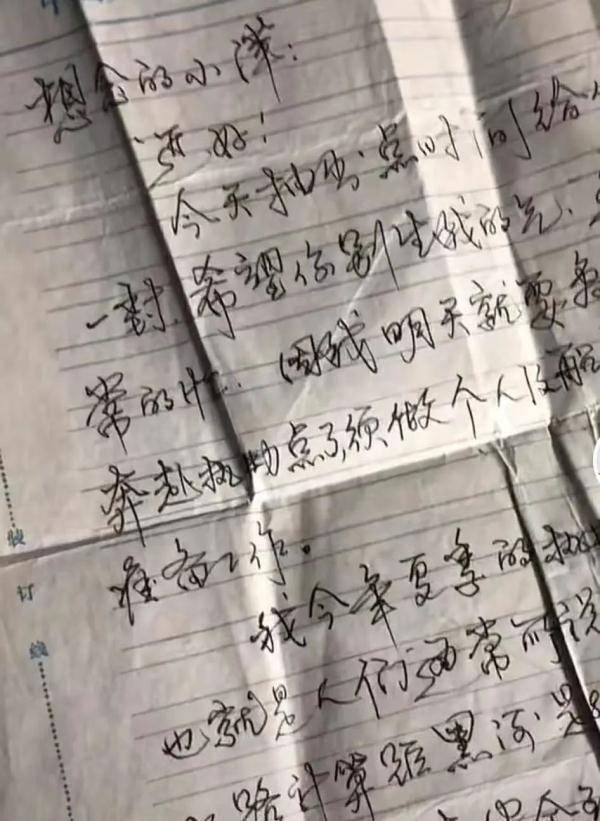 想念的小萍:
您好!
今天抽出点时间给
一封,希望你别生我的气,
常的忙.因我明天就要
奔赴执勤点,须做个人
准备工作。
我今年夏季的执
也就是人们通常所说
路计算题黑河是
装
订
线